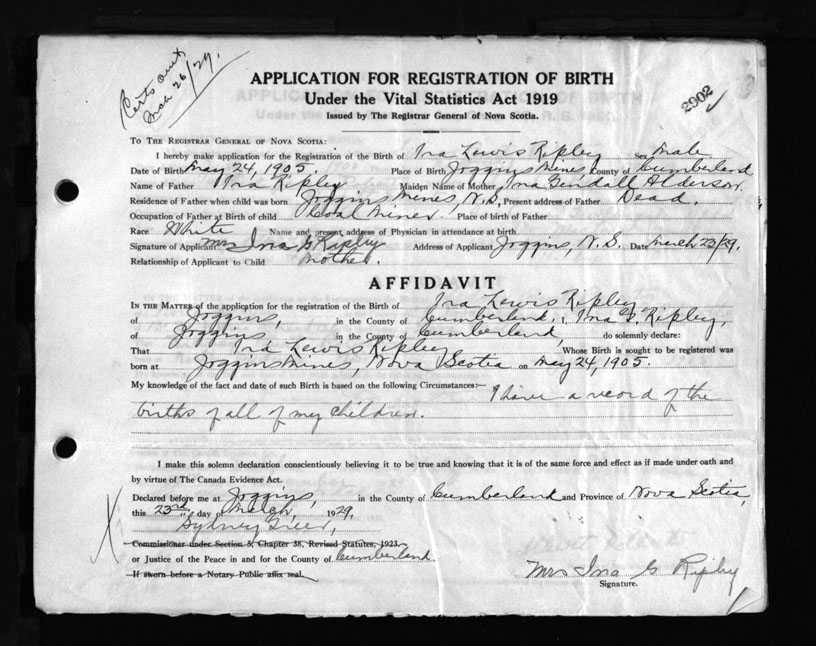 Certs out
Mch 26/29.
APPLICATION FOR REGISTRATION OF BIRTH
2902
Under the Vital Statistics Act 1919
Issued by The Registrar General of Nova Scotia.
TO THE REGISTRAR GENERAL OF NOVA SCOTIA:
I hereby make application for the Registration of the Birth of Ira Lewis Ripley Sex male
Date of Birth May 24, 1905. Place of Birth Joggins Mines, County of Cumberland
Name of Father Ira Ripley Maiden Name of Mother Ina Gendall Alderson.
Residence of Father when child was born Joggins Mines, N.S. Present address of Father Dead.
Occupation of Father at Birth of child Coal Miner. Place of birth of Father
Race White Name and present address of Physician in attendance at birth
Signature of Applicant Mrs Ina G Ripley Address of Applicant Joggins, N.S. Date March 23/29.
Relationship of Applicant to Child Mother.
AFFIDAVIT
IN THE MATTER of the application for the registration of the Birth of Ira Lewis Ripley
of Joggins, in the County of Cumberland. I, Ina G. Ripley,
of Joggins in the County of Cumberland, do solemnly declare:
That Ira Lewis Ripley Whose Birth is sought to be registered was
born at Joggins Mines, Nova Scotia on May 24, 1905.
My knowledge of the fact and date of such Birth is based on the following Circumstances:— I have a record of the
births of all of my children.
I make this solemn declaration conscientiously believing it to be true and knowing that it is of the same force and effect as if made under oath and
by virtue of The Canada Evidence Act.
Declared before me at Joggins, in the County of Cumberland and Province of Nova Scotia,
this 23rd day of March, 1929.
Sydney Greer,
Commissioner under Section 5, Chapter 38, Revised Statutes, 1923.
or Justice of the Peace in and for the County of Cumberland.
If sworn before a Notary Public affix seal.
Mrs Ina G Ripley
Signature.